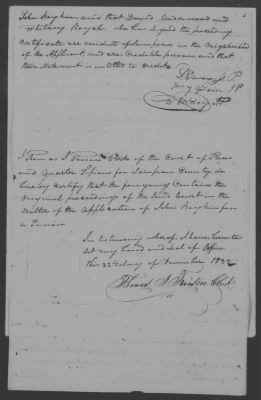 John Hopkins and that David Underwood and
Whitney Royal who has signed the preceding
Certificate are residents of Sampson in the Neighborhood
of the Applicant and are Credible persons and that
their Statement is entitled to credit
J.P.
Henry J.P.
J.P.
I Thomas I Clerk of the Court of Pleas
and Quarter Sessions for Sampson County do
hereby certify that the foregoing Contains the
Original proceedings of the said Court in the
Matter of the Application of John Hopkins for
a Pension
In testimony whereof I have hereunto
Set my hand and Seal of Office
this 22nd day of November 1832
Thomas I Clerk